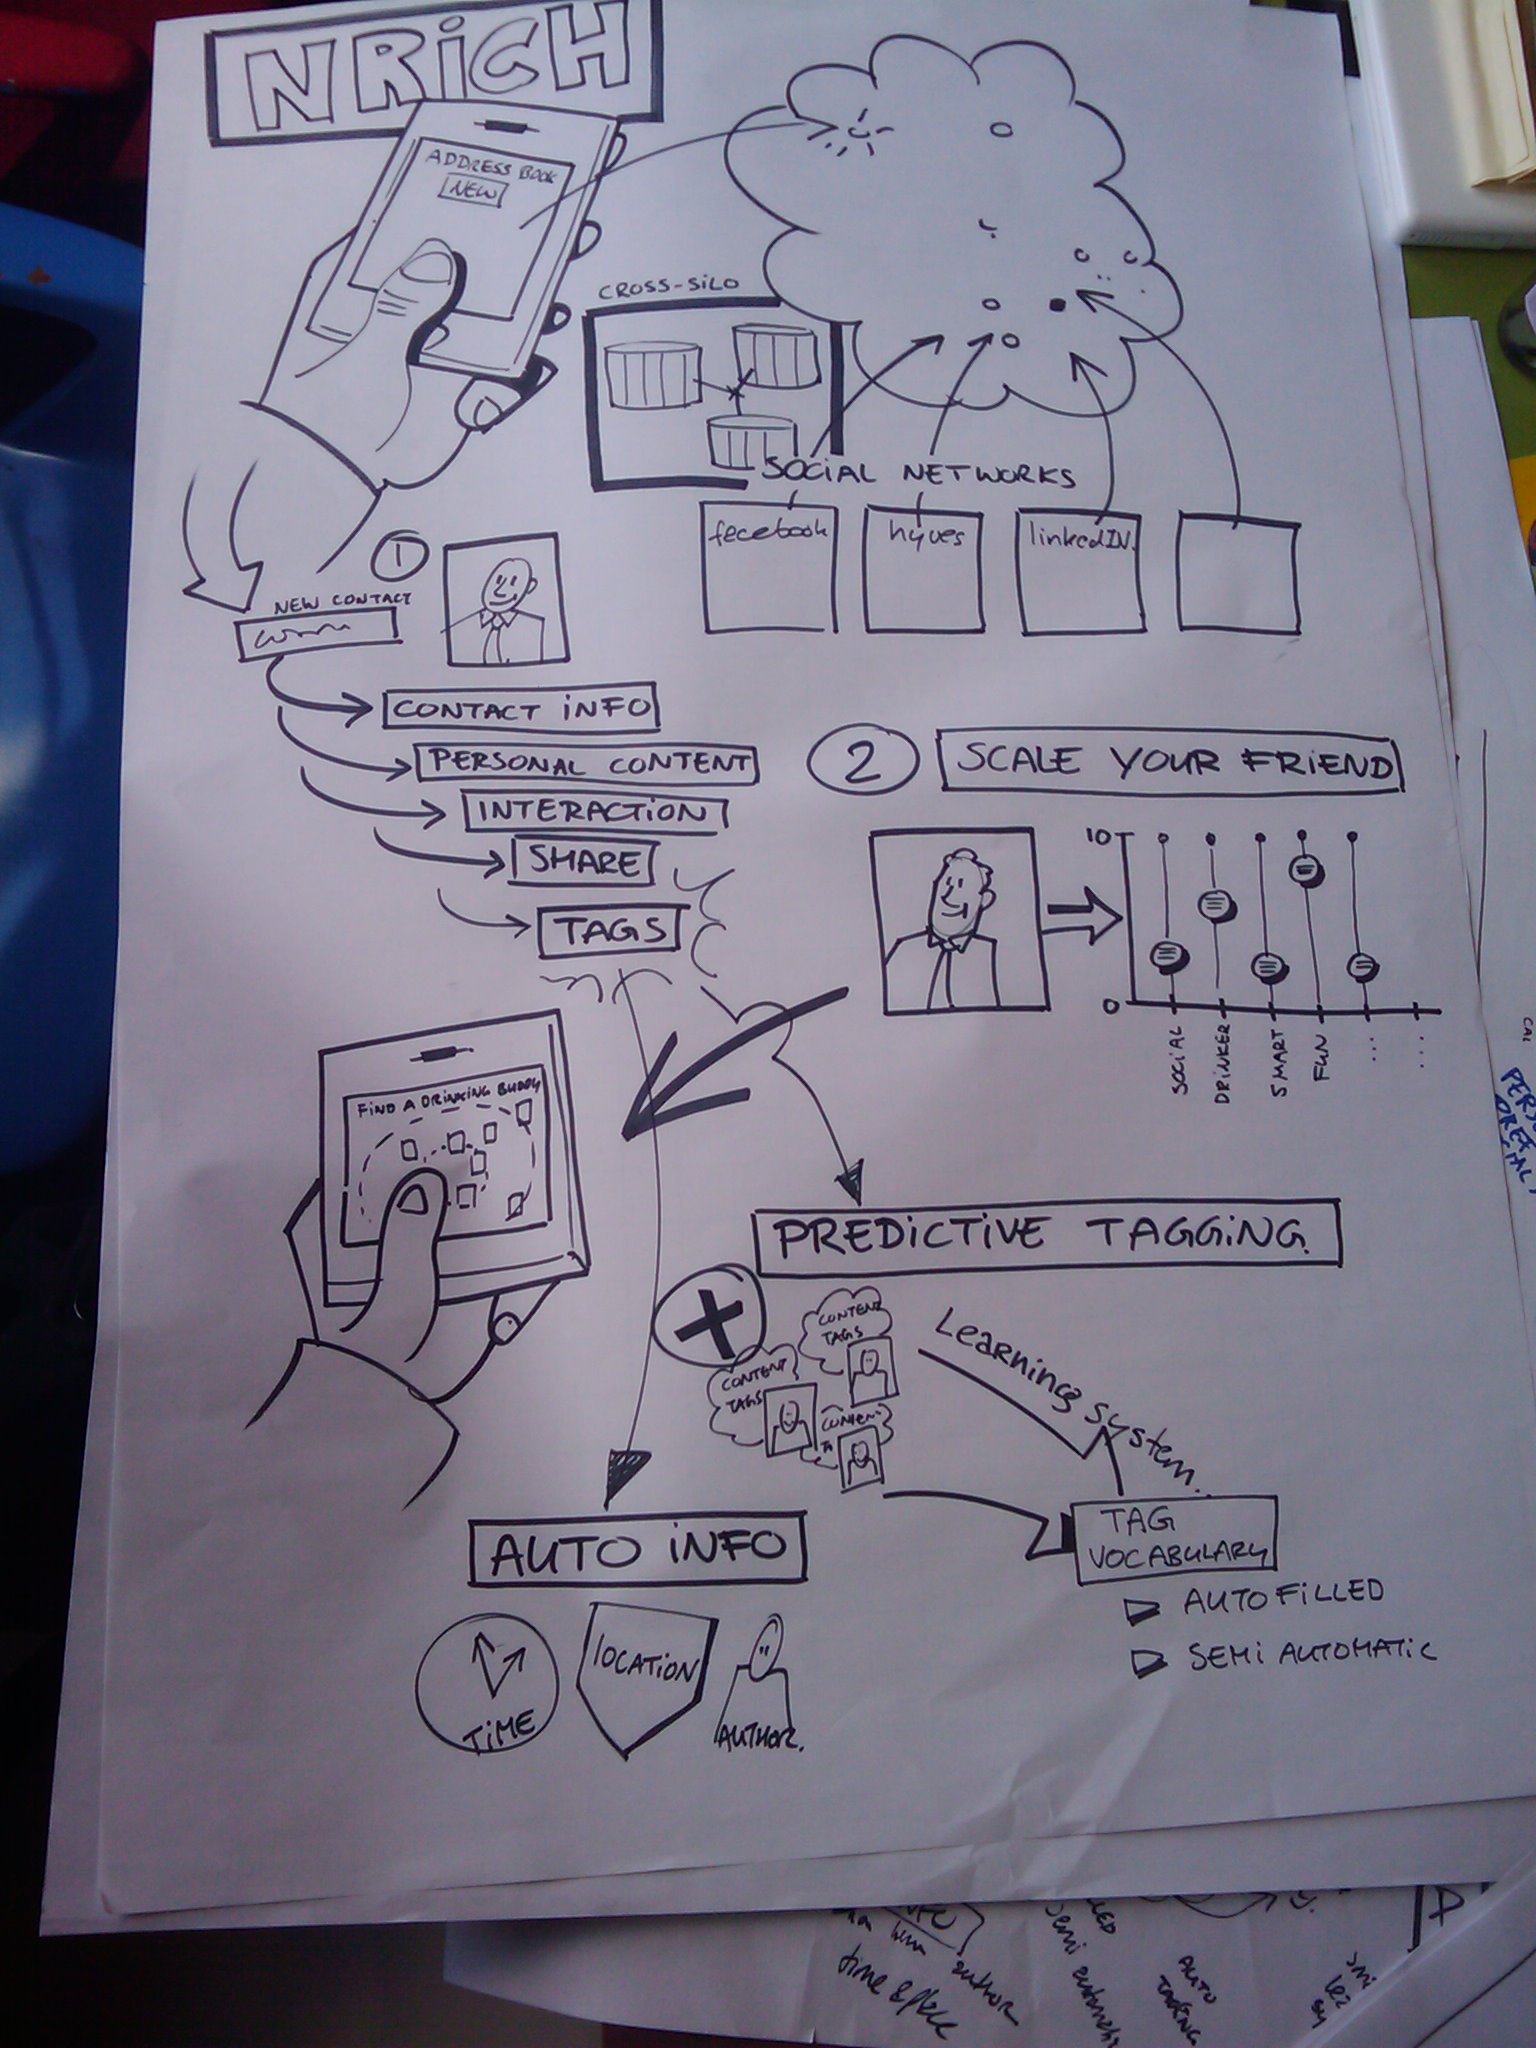 NRiCH
ADDRESS BOOK
NEW
CROSS-SiLO
SOCiAL NETWORKS
fecebook
hyves
linkedIN.
1
NEW CONTACT
CONTACT iNFO
PERSONAL CONTENT
INTERACTiON
SHARE
TAGS
2
SCALE YOUR FRiEND
10
0
SOCiAL
DRiNKER
SMART
FUN
...
....
FiND A DRiNKiNG BUDDY
PREDiCTiVE TAGGiNG
CONTENT
TAGS
CONTENT
TAGS
CONTENT
Learning system..
TAG
VOCABULARY
AUTO FiLLED
SEMi AUTOMATiC
AUTO iNFO
TiME
LOCATiON
AUTHOR.
author
time & place
AUTO